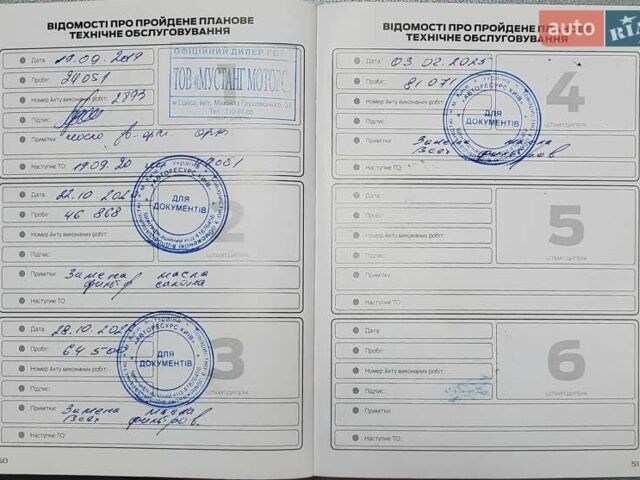 ВІДОМОСТІ ПРО ПРОЙДЕНЕ ПЛАНОВЕ
ТЕХНІЧНЕ ОБСЛУГОВУВАННЯ
Дата: 19.09.2019
Пробіг: 24051
Номер Акту виконаних робіт: 2893
Підпис:
Примітки: масло
Наступне ТО: 19.09.20
ОФІЦІЙНИЙ ДИЛЕР FORD
ТОВ «МУСТАНГ МОТОРС»
м.Одеса, вул. Михайла Грушевського, 37
Дата: 22.10
Пробіг: 46 868
Номер Акту виконаних робіт:
Підпис:
Примітки: Замена масла
фильтр салона
Наступне ТО:
2
ШТАМП ДИЛЕРА
Україна
м. Київ
«АВТОРЕСУРС КИЇВ»
ДЛЯ
ДОКУМЕНТІВ
Дата: 28.10
Пробіг: 64 500
Номер Акту виконаних робіт:
Підпис:
Примітки: Замена масла
Всех фильтров.
Наступне ТО:
3
ШТАМП ДИЛЕРА
Україна
м. Київ
«АВТОРЕСУРС КИЇВ»
ДЛЯ
ДОКУМЕНТІВ
50
ВІДОМОСТІ ПРО ПРОЙДЕНЕ ПЛАНОВЕ
ТЕХНІЧНЕ ОБСЛУГОВУВАННЯ
auto RIA
Дата: 03.02.2025
Пробіг: 81 071
Номер Акту виконаних робіт:
Підпис:
Примітки: Замена масла
Всех фильтров
Наступне ТО:
4
ШТАМП ДИЛЕРА
Україна
м. Київ
«АВТОРЕСУРС КИЇВ»
ДЛЯ
ДОКУМЕНТІВ
Дата:
Пробіг:
Номер Акту виконаних робіт:
Підпис:
Примітки:
Наступне ТО:
5
ШТАМП ДИЛЕРА
Дата:
Пробіг:
Номер Акту виконаних робіт:
Підпис:
Примітки:
Наступне ТО:
6
ШТАМП ДИЛЕРА
51